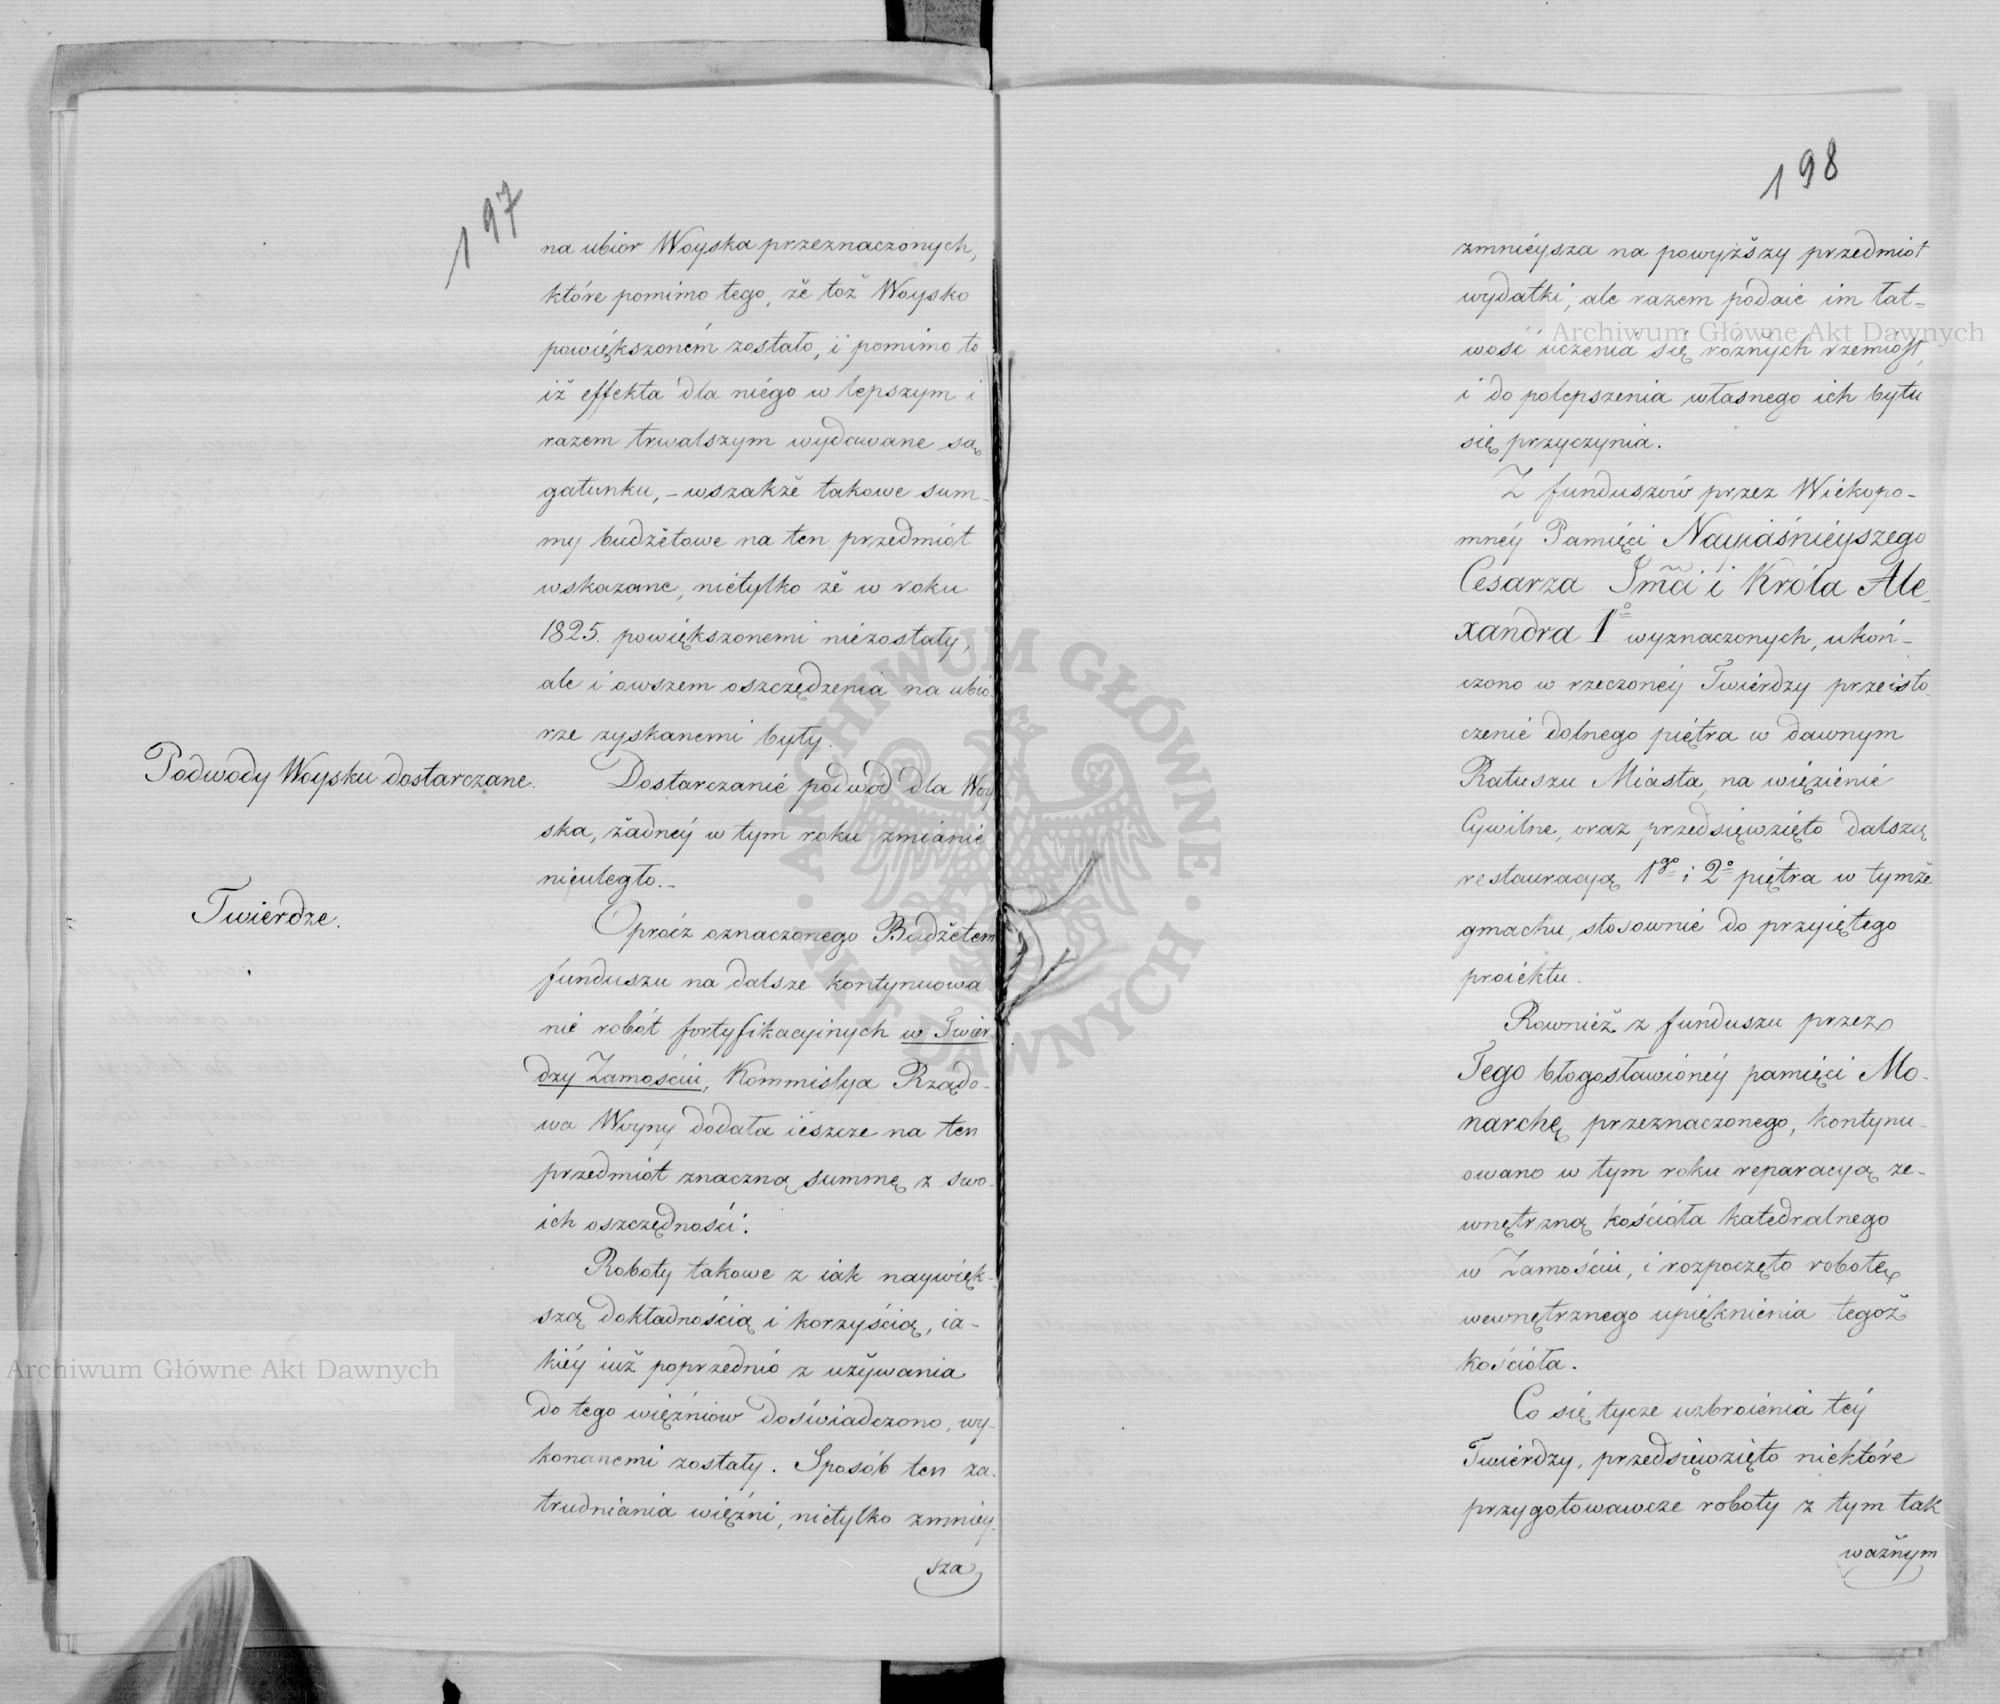 197
na ubior Woyska przeznaczonych,
które pomimo tego, że toż Woysko
powiększoném zostało, i pomimo to
iż effekta dla niégo w lepszym i
razem trwalszym wydawane są
gatunku, – wszakże takowe sum-
my budżetowe na ten przedmiót
wskazane, nietylko że w roku
1825. powiększonemi niezostały,
ale i owszem oszczędzenia na ubio-
rze zyskanemi były.
Podwody Woysku dostarczane.
Dostarczanié podwód dla Woy
ska, żadnéy w tym roku zmianié
nieuległo.–
Twierdze.
Oprócz oznaczonego Budżetem
funduszu na dalsze kontynuowa
nié robót fortyfikacyinych w Twier-
dzy Zamościu, Kommissya Rządo-
wa Woyny dodała ieszcze na ten
przedmiót znaczną summę z swo-
ich oszczędności.
Roboty takowe z iak naywięk-
szą dokładnością i korzyścią, ia-
kiéy iuż poprzednio z używania
do tego więźniow doświadczono, wy-
konanemi zostały. Sposób ten za-
trudniania więźni, nietylko zmniéy-
sza
198
zmniéysza na powyższy przedmiot
wydatki, ale razem podaie im łat-
wość uczenia się rożnych rzemiosł,
i do polepszenia własnego ich bytu
się przyczynia.
Z funduszów przez Wiékopo-
mnéy Pamięci Nayiaśniéyszego
Cesarza Jmći i Króla Ale-
xandra 1º wyznaczonych, ukoń-
czono w rzeczonéy Twiérdzy przeisto-
czenié dolnego piętra w dawnym
Ratuszu Miasta, na więzienié
Cywilne, oraz przedsięwzięto dalszą
restauracyą 1go i 2º piętra w tymże
gmachu, stosownié do przyiętego
proiéktu.
Rownież z funduszu przez
Tego błogosławionéy pamięci Mo-
narchę przeznaczonego, kontynu-
owano w tym roku reparacyą ze-
wnętrzną kościoła katedralnego
w Zamościu, i rozpoczęto robotę
wewnętrznego upięknienia tegoż
kościoła.
Co się tycze uzbroiénia téy
Twiérdzy, przedsięwzięto niektóre
przygotowawcze roboty z tym tak
ważnym
Archiwum Główne Akt Dawnych
Archiwum Główne Akt Dawnych
ARCHIWUM GŁÓWNE AKT DAWNYCH